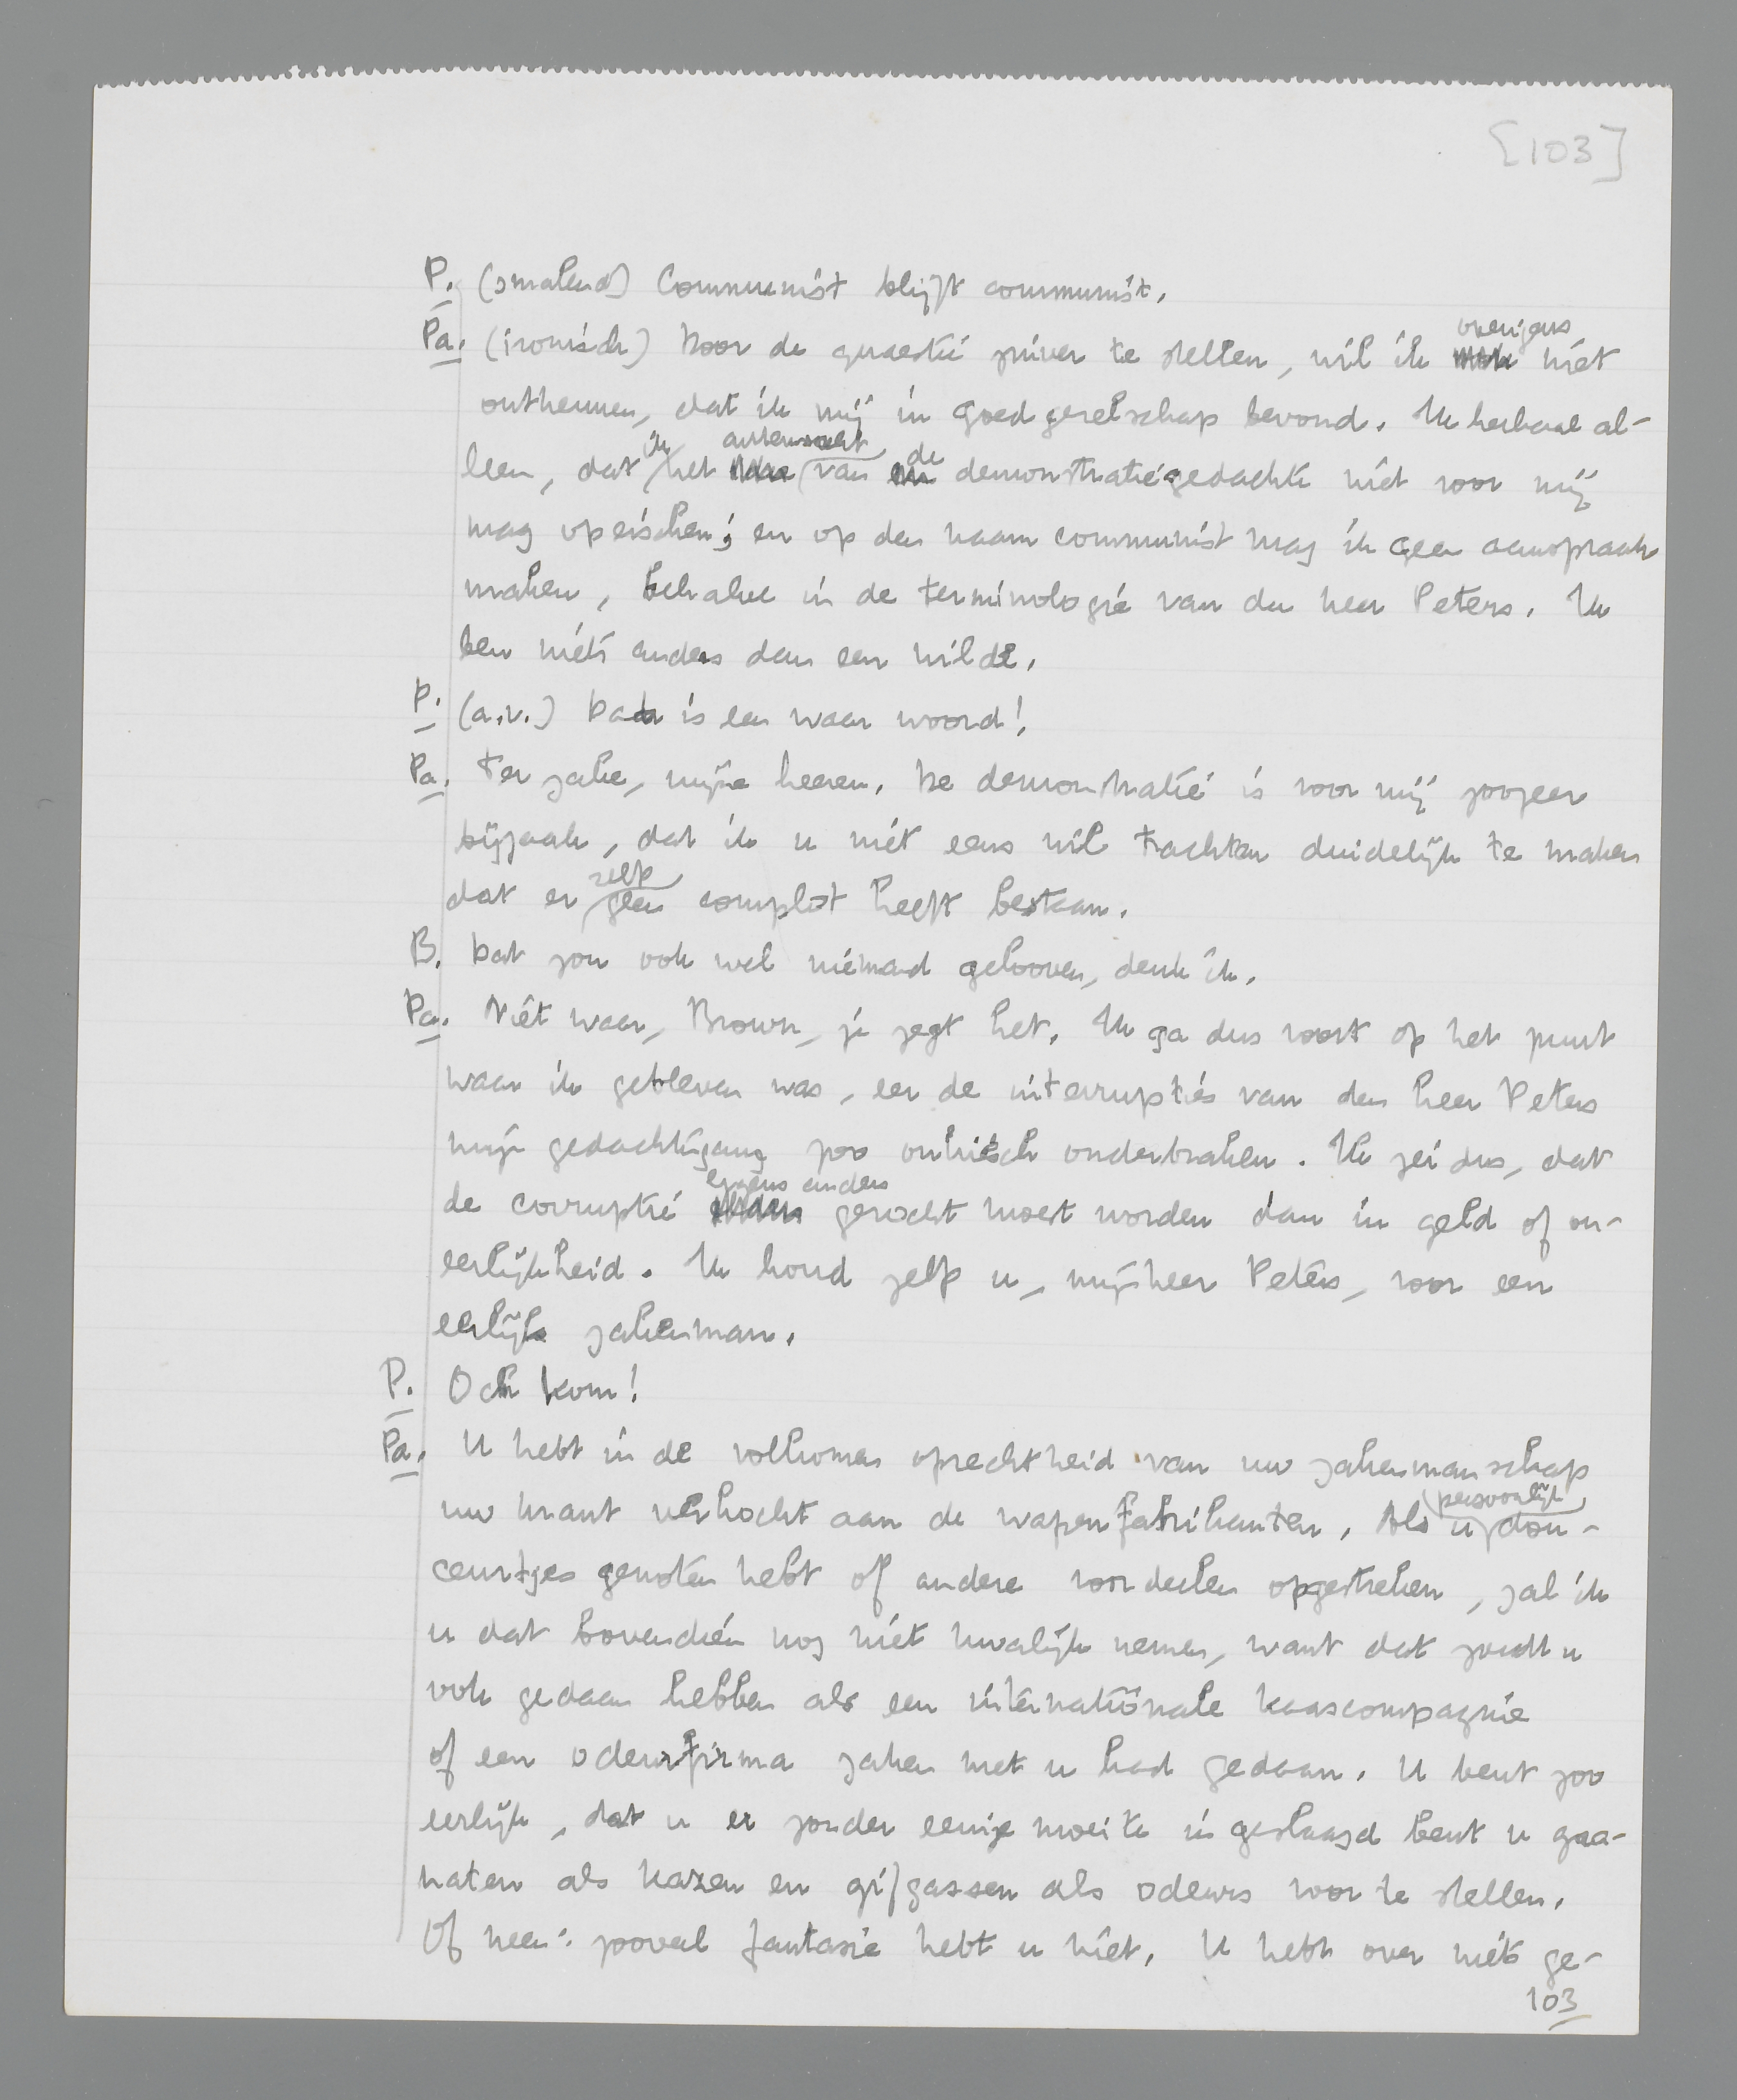 [103]
P. (smalend) Communist blijft communist.
Pa. (ironisch) Door de quaestie zuiver te stellen, wil ik overigens niet
ontkennen, dat ik mij in goed gezelschap bevond. Ik herhaal al-
leen, dat ik het auteursrecht van de demonstratiegedachte niet voor mij
mag opeischen; en op den naam communist mag ik geen aanspraak
maken, behalve in de terminologie van den heer Peters. Ik
ben niets anders dan een wilde.
P. (a.v.) Dat is een waar woord!
Pa. Ter zake, mijne heeren. De demonstratie is voor mij zoozeer
bijzaak, dat ik u niet eens wil trachten duidelijk te maken
dat er zelfs geen complot heeft bestaan.
B. Dat zou ook wel niemand gelooven, denk ik.
Pa. Niet waar, Brown, je zegt het. Ik ga dus voort op het punt
waar ik gebleven was, eer de interrupties van den heer Peters
mijn gedachtegang zoo onderbraken. Ik zei dus, dat
de corruptie ergens anders gezocht moest worden dan in geld of on-
eerlijkheid. Ik houd zelfs u, mijnheer Peters, voor een
eerlijk zakenman.
P. Och kom!
Pa. U hebt in de volkomen oprechtheid van uw zakenmanschap
uw krant verkocht aan de wapenfabrikanten. Als u persoonlijk dou-
ceurtjes genoten hebt of andere voordeelen opgestreken, zal ik
u dat bovendien nog niet kwalijk nemen, want dat zoudt u
ook gedaan hebben als een internationale kaascompagnie
of een odeurfirma zaken met u had gedaan. U bent zoo
eerlijk, dat u er zonder eenige moeite in geslaagd bent u gra-
naten als kazen en gifgassen als odeurs voor te stellen.
Of neen: zooveel fantasie hebt u niet. U hebt over niets ge-
103